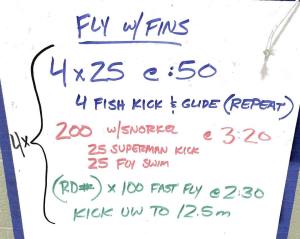 FLY w/ FINS
4 x 25 @ :50
4 FISH KICK & GLIDE (REPEAT)
4x
200 w/SNORKEL @ 3:20
25 SUPERMAN KICK
25 FLY SWIM
(RD#) x 100 FAST FLY @ 2:30
KICK UW TO 12.5m